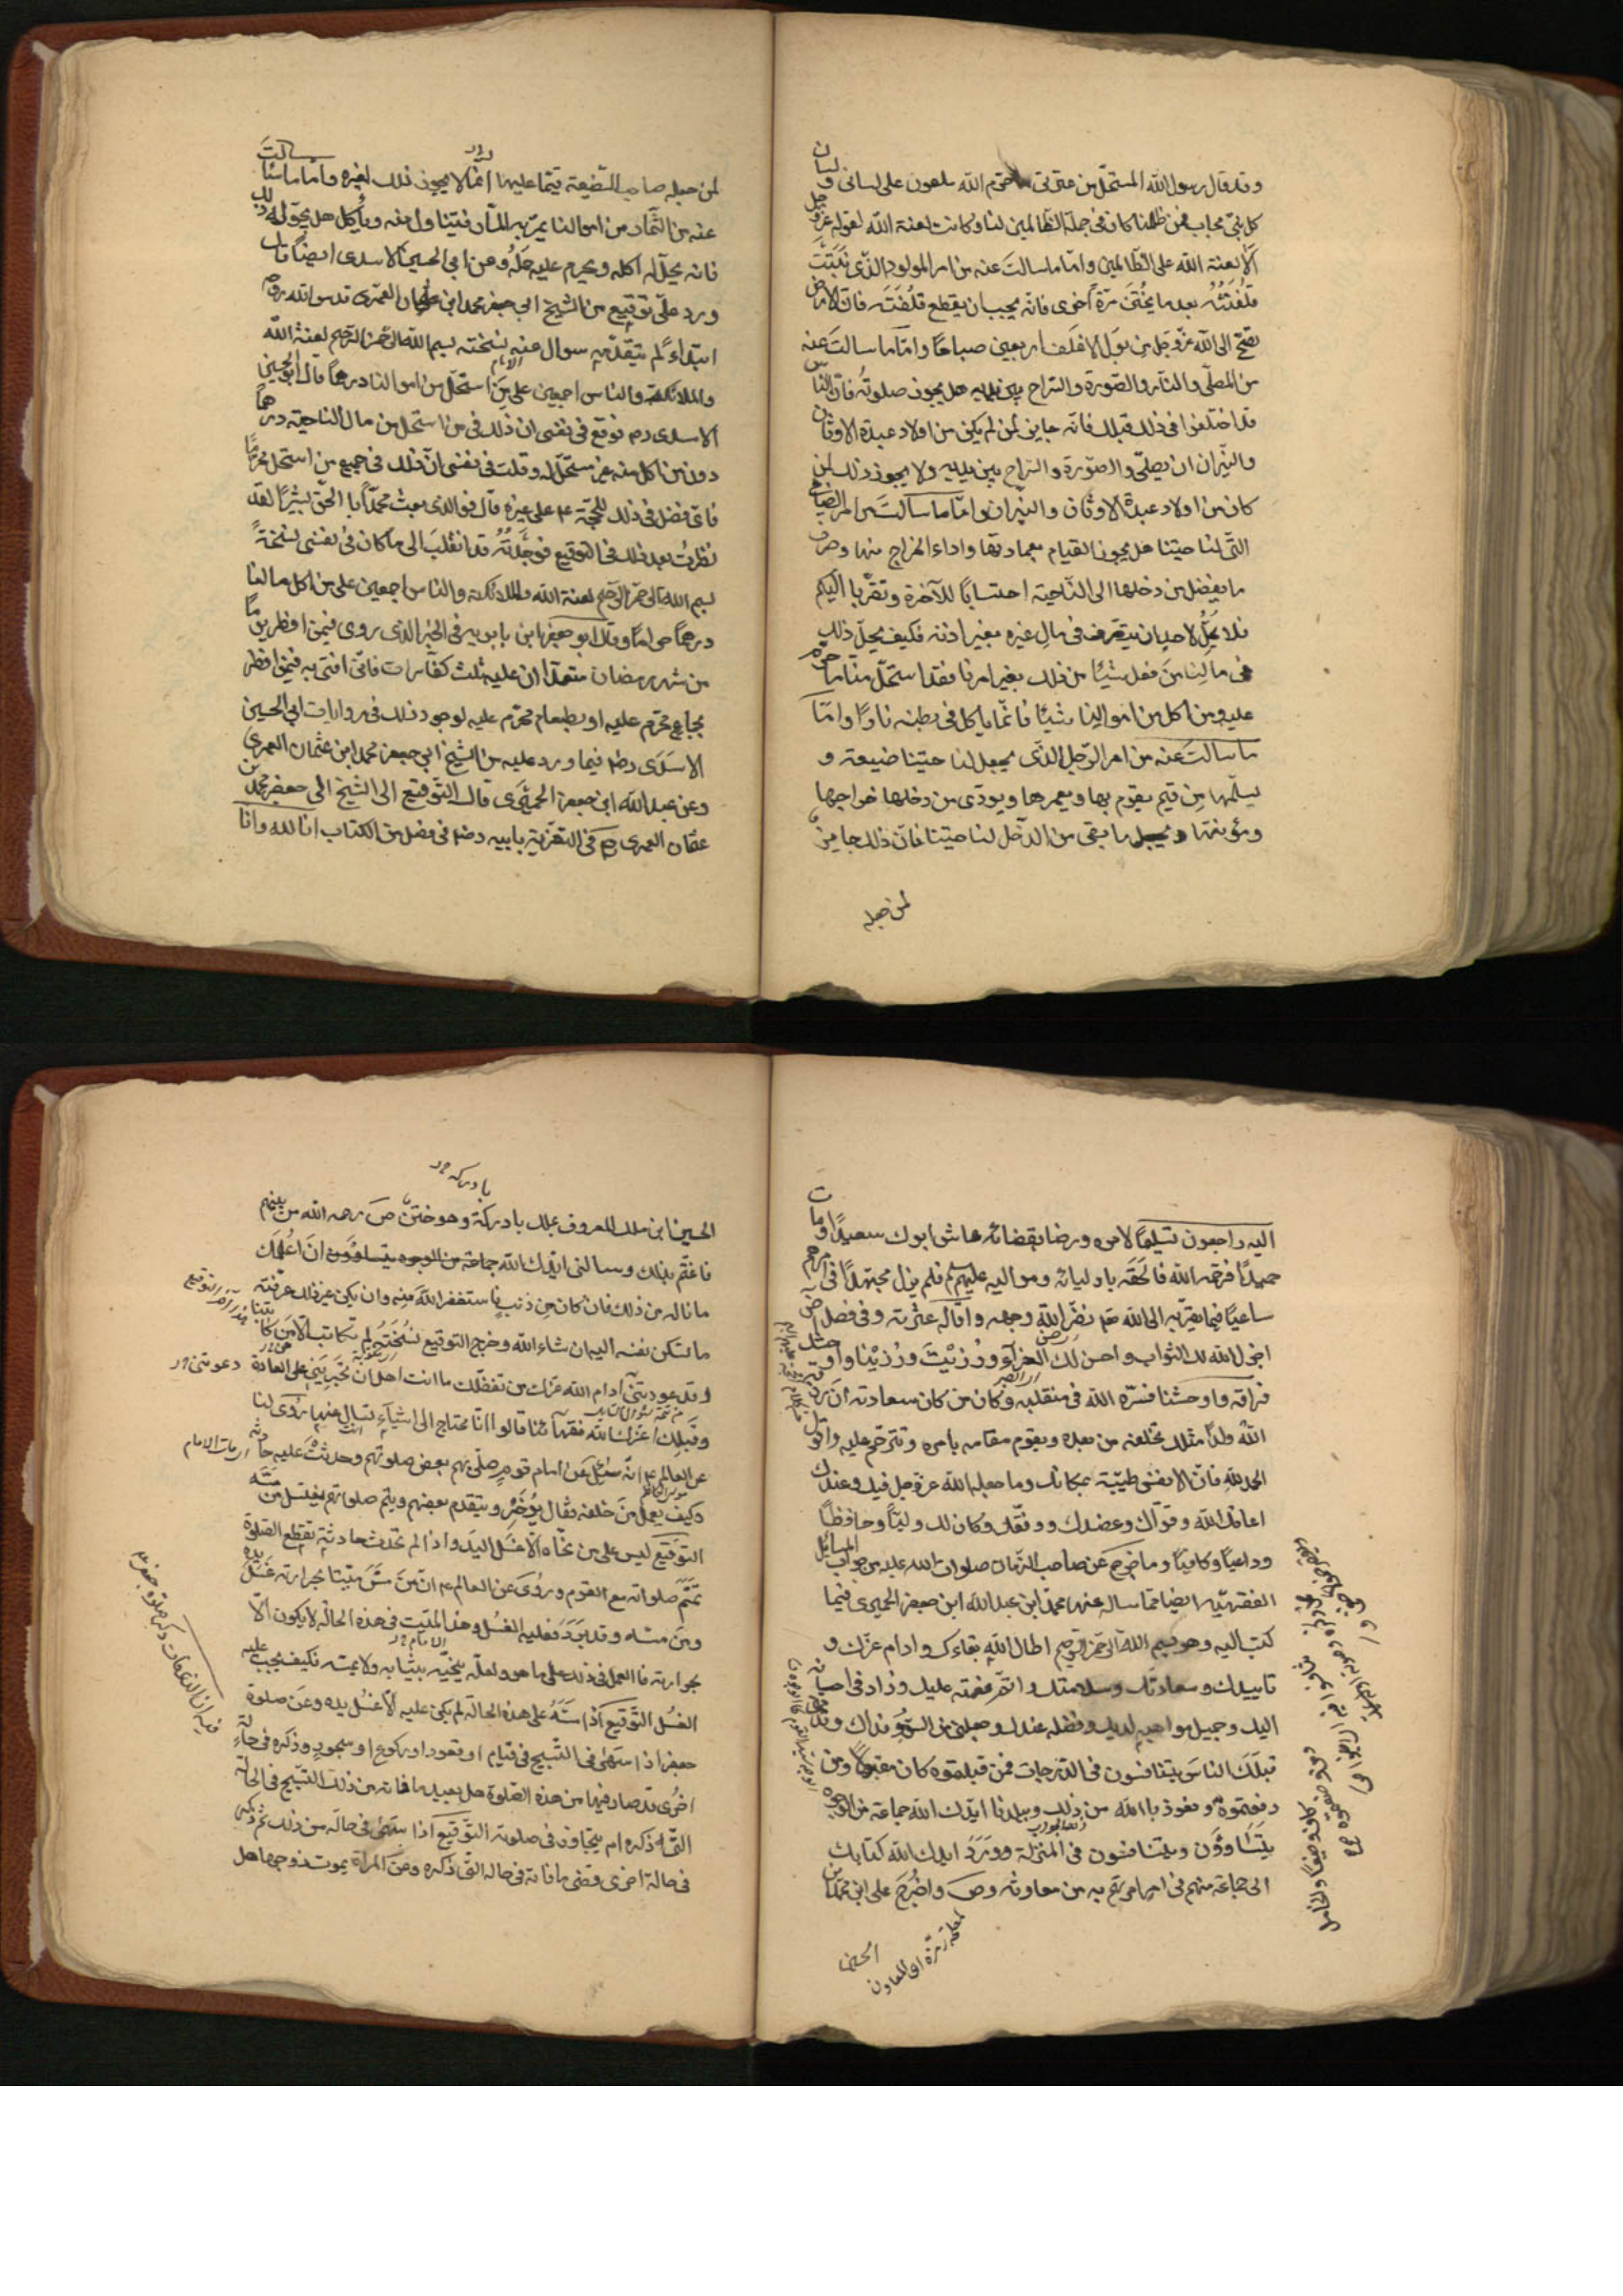 وقد قال رسول الله المستحل من عترتی ما حرم الله ملعون علی لسانی ولسان
کل نبی مجاب فمن ظلمنا کان فی جملة الظالمین لنا وکانت لعنة الله لقوله عز وجل
ألا لعنة الله علی الظالمین واما ما سالت عنه من امر المولود الذی نبتت
قلفته بعد ما یختن مرة اخری فانه یجب ان یقطع قلفته فان الارض
تضج الی الله عز وجل من بول الاغلف اربعین صباحا واما ما سالت عنه
من المصلی والنار والصورة والسراج بین یدیه هل یجوز صلوته فان الناس
قد اختلفوا فی ذلک قبلک فانه جایز لمن لم یکن من اولاد عبدة الاوثان
والنیران ان یصلی والصورة والسراج بین یدیه ولا یجوز ذلک لمن
کان من اولاد عبدة الاوثان والنیران واما ما سالت من امر الضیاع
التی لنا حیتنا هل یجوز القیام بعمارتها واداء الخراج منها وصرف
ما یفضل من دخلها الی الناحیة احتسابا للآخرة وتقربا الیکم
فلا یحل لاحد ان یتصرف فی مال غیره بغیر اذنه فکیف یحل ذلک
فی مالنا من فعل شیئا من ذلک بغیر امرنا فقد استحل منا ما حرم
علیه ومن اکل من اموالنا شیئا فانما یاکل فی بطنه نارا واما
ما سالت عنه من امر الرجل الذی یجعل لنا حیتنا ضیعة و
یسلمها من قیم یقوم بها ویعمرها ویودی من دخلها خراجها
ومؤنتها ویجعل ما بقی من الدخل لنا حیتنا فان ذلک جایز
لمن جعله
لمن جعله صاحب الضیعة قیما علیها انما لا یجوز ذلک لغیره واما ما سالت
عنه من الثمار من اموالنا یمر به المار فیتناول منه ویأکل هل یحل له ذلک
فانه یحل له اکله ویحرم علیه حمله وعن ابی الحسین الاسدی ایضا قال
ورد علی توقیع من الشیخ ابی جعفر محمد ابن عثمان العمری قدس الله روحه
ابتداء لم یتقدمه سوال عنه نسخته بسم الله الرحمن الرحیم لعنة الله
والملائکة والناس اجمعین علی من استحل من اموالنا درهما قال ابو الحسین
الاسدی ره فوقع فی نفسی ان ذلک فی من استحل من مال الناحیة درهما
دون من اکل منه غیر مستحل له وقلت فی نفسی ان ذلک فی جمیع من استحل محرما
فای فضل فی ذلک للحجة ع علی غیره قال فوالذی بعث محمدا بالحق بشیرا لقد
نظرت بعد ذلک فی التوقیع فوجدته قد انقلب الی ما کان فی نفسی نسخته
بسم الله الرحمن الرحیم لعنة الله والملائکة والناس اجمعین علی من اکل مالنا
درهما حراما وقال ابو جعفر ابن بابویه فی الخبر الذی روی فیمن افطر یوما
من شهر رمضان متعمدا ان علیه ثلث کفارات فانی افتی به فیمن افطر
بجماع محرم علیه او بطعام محرم علیه لوجود ذلک فی روایات ابی الحسین
الاسدی رض فیما ورد علیه من الشیخ ابی جعفر محمد ابن عثمان العمری
وعن عبد الله ابن جعفر الحمیری قال التوقیع الی الشیخ ابی جعفر محمد بن
عثمان العمری ره فی التعزیة بابیه رض فی فصل من الکتاب انا لله وانا
الیه راجعون تسلیما لامره ورضا بقضائه عاش ابوک سعیدا ومات
حمیدا فرحمه الله فالحقه باولیائه وموالیه علیهم السلام فلم یزل مجتهدا فی امرهم
ساعیا فیما یقربه الی الله نضر الله وجهه واقاله عثرته وفی فصل آخر
اجزل الله لک الثواب واحسن لک العزاء ورزیت ورزینا واوحشک
فراقه واوحشنا فسره الله فی منقلبه وکان من کان سعادته ان رزقه
الله ولدا مثلک یخلفه من بعده ویقوم مقامه بامره ویترحم علیه واقول
الحمد لله فان الانفس طیبة بمکانک وما جعله الله عز وجل فیک وعندک
اعانک الله وقواک وعضدک ووفقک وکان لک ولیا وحافظا
وراعیا وکافیا ومما خرج عن صاحب الزمان صلوات الله علیه من جواب المسائل
الفقهیة ایضا مما ساله عنها محمد ابن عبد الله ابن جعفر الحمیری فیما
کتب الیه وهو بسم الله الرحمن الرحیم اطال الله بقاءک وادام عزک و
تاییدک وسعادتک وسلامتک واتم نعمته علیک وزاد فی احسانه
الیک وجمیل مواهبه لدیک وفضله عندک وجعلنی من السوء فداک وقدمنی
قبلک الناس یتنافسون فی الدرجات فمن قبلتموه کان مقبولا ومن
دفعتموه ونعوذ بالله من ذلک وببلدنا ایدک الله جماعة من الوجوه
یتساوون ویتنافسون فی المنزلة وورد ایدک الله کتابک
الی جماعة منهم فی امر امرتهم به من معاونة ص واخرج علی ابن محمد بن
الحسین
بادرکه
الحسین ابن ملک المعروف بملک بادرکة وهو ختن ص رحمه الله من بینهم
فاغتم بذلک وسالنی ایدک الله جماعة من الوجوه یتساوون ان اعلمک
ما ناله من ذلک فان کان من ذنب فاستغفر الله منه وان یکن غیر ذلک عرفته
ما تسکن نفسه الیه ان شاء الله وخرج التوقیع نسخته لم نکاتب الا من کاتبنا
وقد عودتنی ادام الله عزک من تفضلک ما انت اهل ان تجیزنی علی العادة
وقبلک اعزک الله فقهاء قالوا انا محتاج الی اشیاء تسال عنها روی لنا
عن العالم ع انه سئل عن امام قوم صلی بهم بعض صلوتهم وحدثت علیه حادثة
کیف یعمل من خلفه فقال یؤخر ویتقدم بعضهم ویتم صلوتهم ویغتسل من مسه
التوقیع لیس علی من نحاه الا غسل الید واذا لم تحدث حادثة تقطع الصلوة
تمم صلوته مع القوم وروی عن العالم ع ان من مس میتا بحرارته غسل یده
ومن مسه وقد برد فعلیه الغسل وهذا المیت فی هذه الحالة لا یکون الا
بحرارته فالعمل فی ذلک علی ما هو ولعله ینحیه بثیابه ولا یمسه فکیف یجب علیه
الغسل التوقیع اذا مسه علی هذه الحالة لم یکن علیه الا غسل یده وعن صلوة
جعفر اذا سهی فی التسبیح فی قیام او قعود او رکوع او سجود وذکره فی حالة
اخری قد صار فیها من هذه الصلوة هل یعید ما فاته من ذلک التسبیح فی الحالة
التی ذکره ام یتجاوز فی صلوته التوقیع اذا سهی فی حالة من ذلک ثم ذکر
فی حالة اخری وقضی ما فاته فی حاله التی ذکره وعن المراة یموت زوجها هل